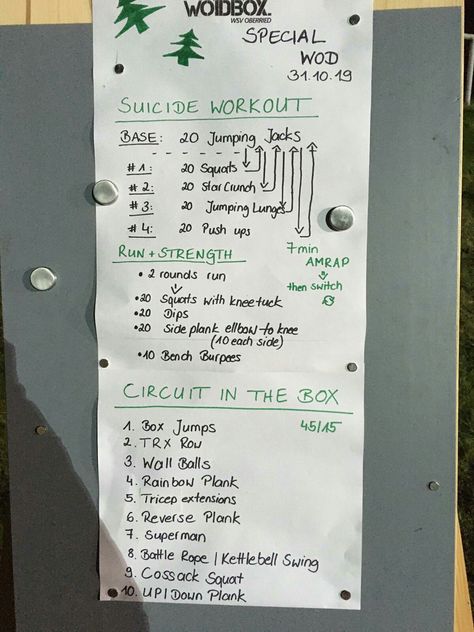 WOIDBOX.
WSV OBERRIED
SPECIAL
WOD
31.10.19
SUICIDE WORKOUT
BASE: 20 Jumping Jacks
#1: 20 Squats
#2: 20 Star Crunch
#3: 20 Jumping Lunges
#4: 20 Push ups
RUN + STRENGTH
7min
AMRAP
then switch
• 2 rounds run
• 20 Squats with kneetuck
• 20 Dips
• 20 Side plank ellbow to knee
(10 each side)
• 10 Bench Burpees
CIRCUIT IN THE BOX
45/15
1. Box Jumps
2. TRX Row
3. Wall Balls
4. Rainbow Plank
5. Tricep extensions
6. Reverse Plank
7. Superman
8. Battle Rope | Kettlebell Swing
9. Cossack Squat
10. UP/Down Plank